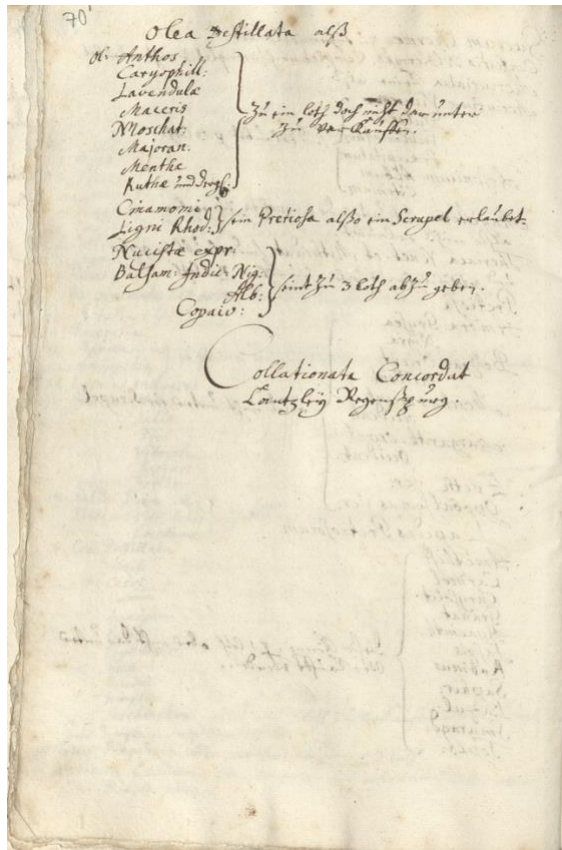 70'
Olea Destillata alß
Ol: Anthos
Caryophill:
Lavendulæ
Maceris
Moschat:
Majoran:
Menthæ
Ruthæ und dergl:
zu ein loth doch nicht darunter
zu verkauffen.
Cinamomi
Ligni Rhod:
sein Pretiosa alßo ein Scrupel erlaubet.
Nucistæ expr:
Balsam: Indic: Nig:
Alb:
Copaiv:
seint zu 3 loth abzugeben.
Collationata Concordat
Cantzley Regenspurg.